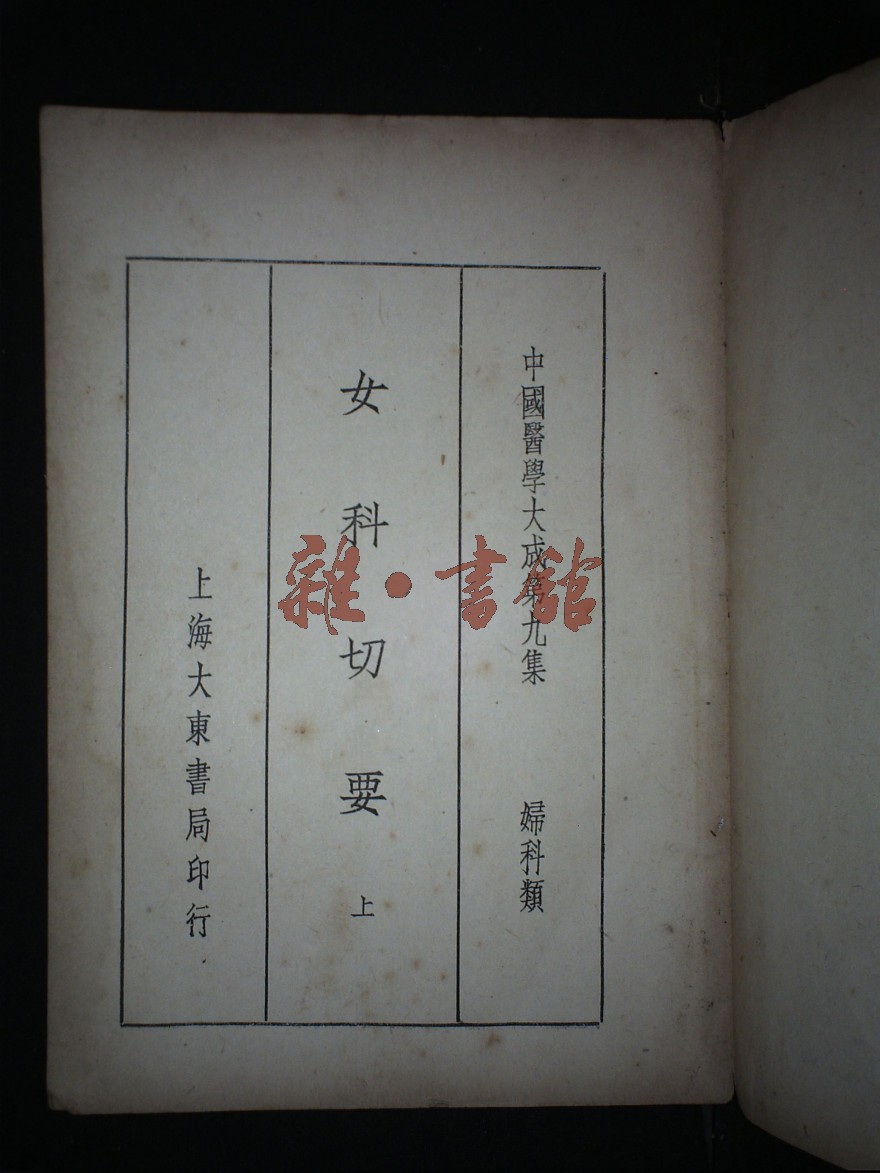 中國醫學大成第九集 婦科類
女科切要 上
上海大東書局印行
雜·書館